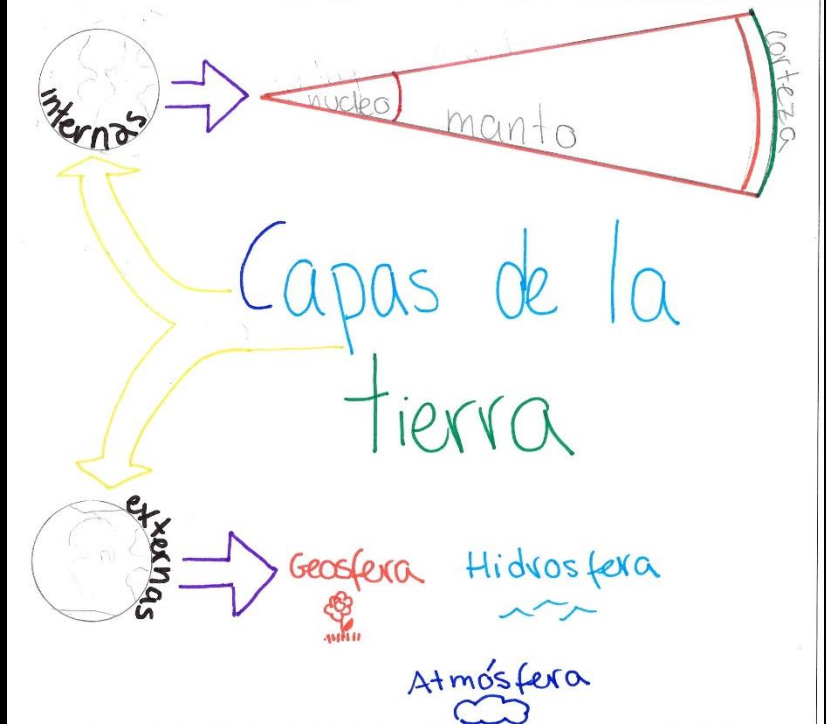 internas
nucleo
manto
corteza
Capas de la
tierra
externas
Geosfera Hidrosfera
Atmósfera